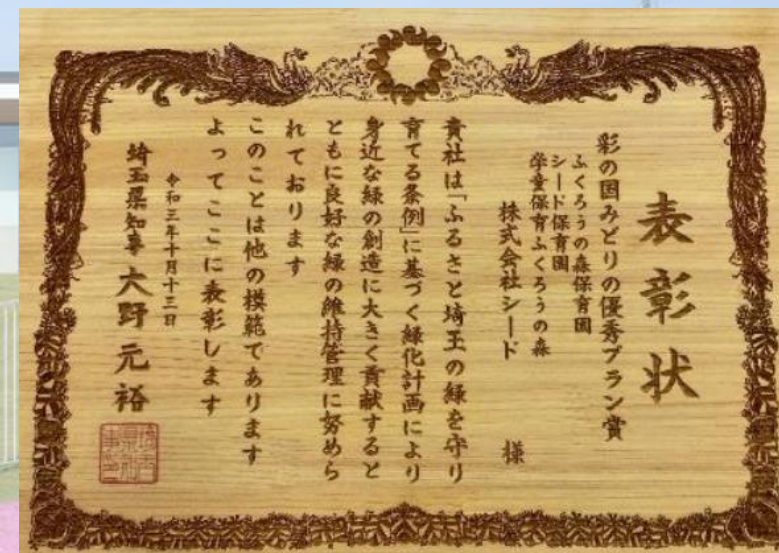 表彰状
彩の国みどりの優秀プラン賞
ふくろうの森保育園
シード保育園
学童保育ふくろうの森
株式会社シード 様
貴社は「ふるさと埼玉の緑を守り
育てる条例」に基づく緑化計画により
身近な緑の創造に大きく貢献すると
ともに良好な緑の維持管理に努めら
れております
このことは他の模範であります
よってここに表彰します
令和三年十月十三日
埼玉県知事 大野元裕